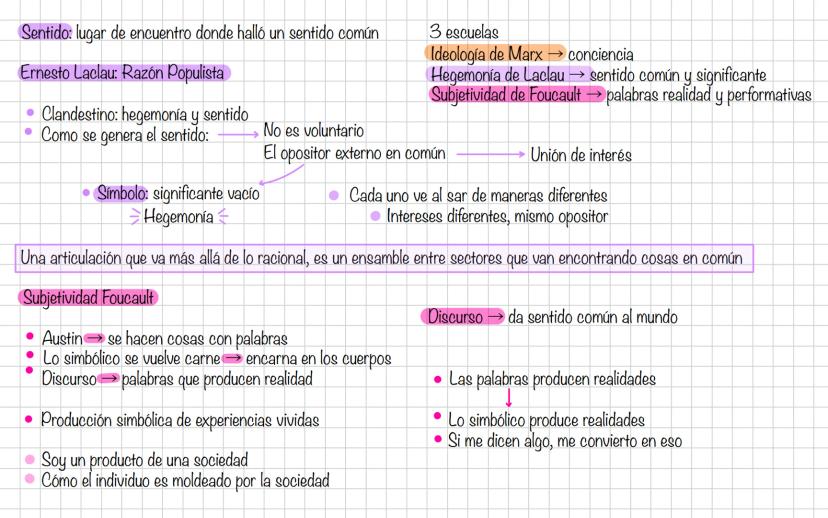 Sentido: lugar de encuentro donde halló un sentido común
Ernesto Laclau: Razón Populista
3 escuelas
Ideología de Marx → conciencia
Hegemonía de Laclau → sentido común y significante
Subjetividad de Foucault → palabras realidad y performativas
• Clandestino: hegemonía y sentido
• Como se genera el sentido: → No es voluntario
El opositor externo en común → Unión de interés
• Símbolo: significante vacío
Hegemonía
• Cada uno ve al sar de maneras diferentes
• Intereses diferentes, mismo opositor
Una articulación que va más allá de lo racional, es un ensamble entre sectores que van encontrando cosas en común
Subjetividad Foucault
• Austin → se hacen cosas con palabras
• Lo simbólico se vuelve carne → encarna en los cuerpos
• Discurso → palabras que producen realidad
• Producción simbólica de experiencias vividas
• Soy un producto de una sociedad
• Cómo el individuo es moldeado por la sociedad
Discurso → da sentido común al mundo
• Las palabras producen realidades
↓
• Lo simbólico produce realidades
• Si me dicen algo, me convierto en eso